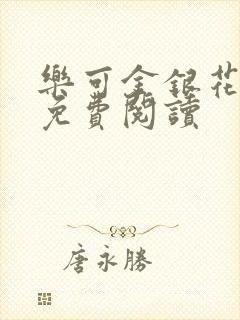 樂可金銀花
免費閱讀
唐永勝